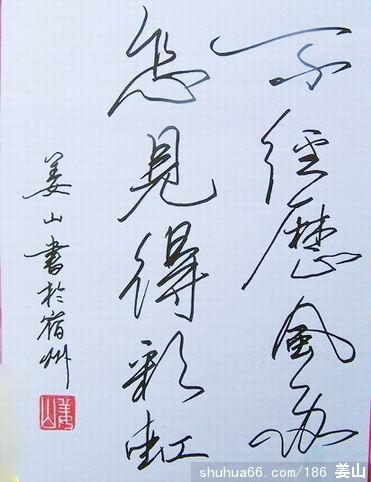 不經歷風雨
怎見得彩虹
姜山書於宿州
姜山
shuhua66.com/186 姜山